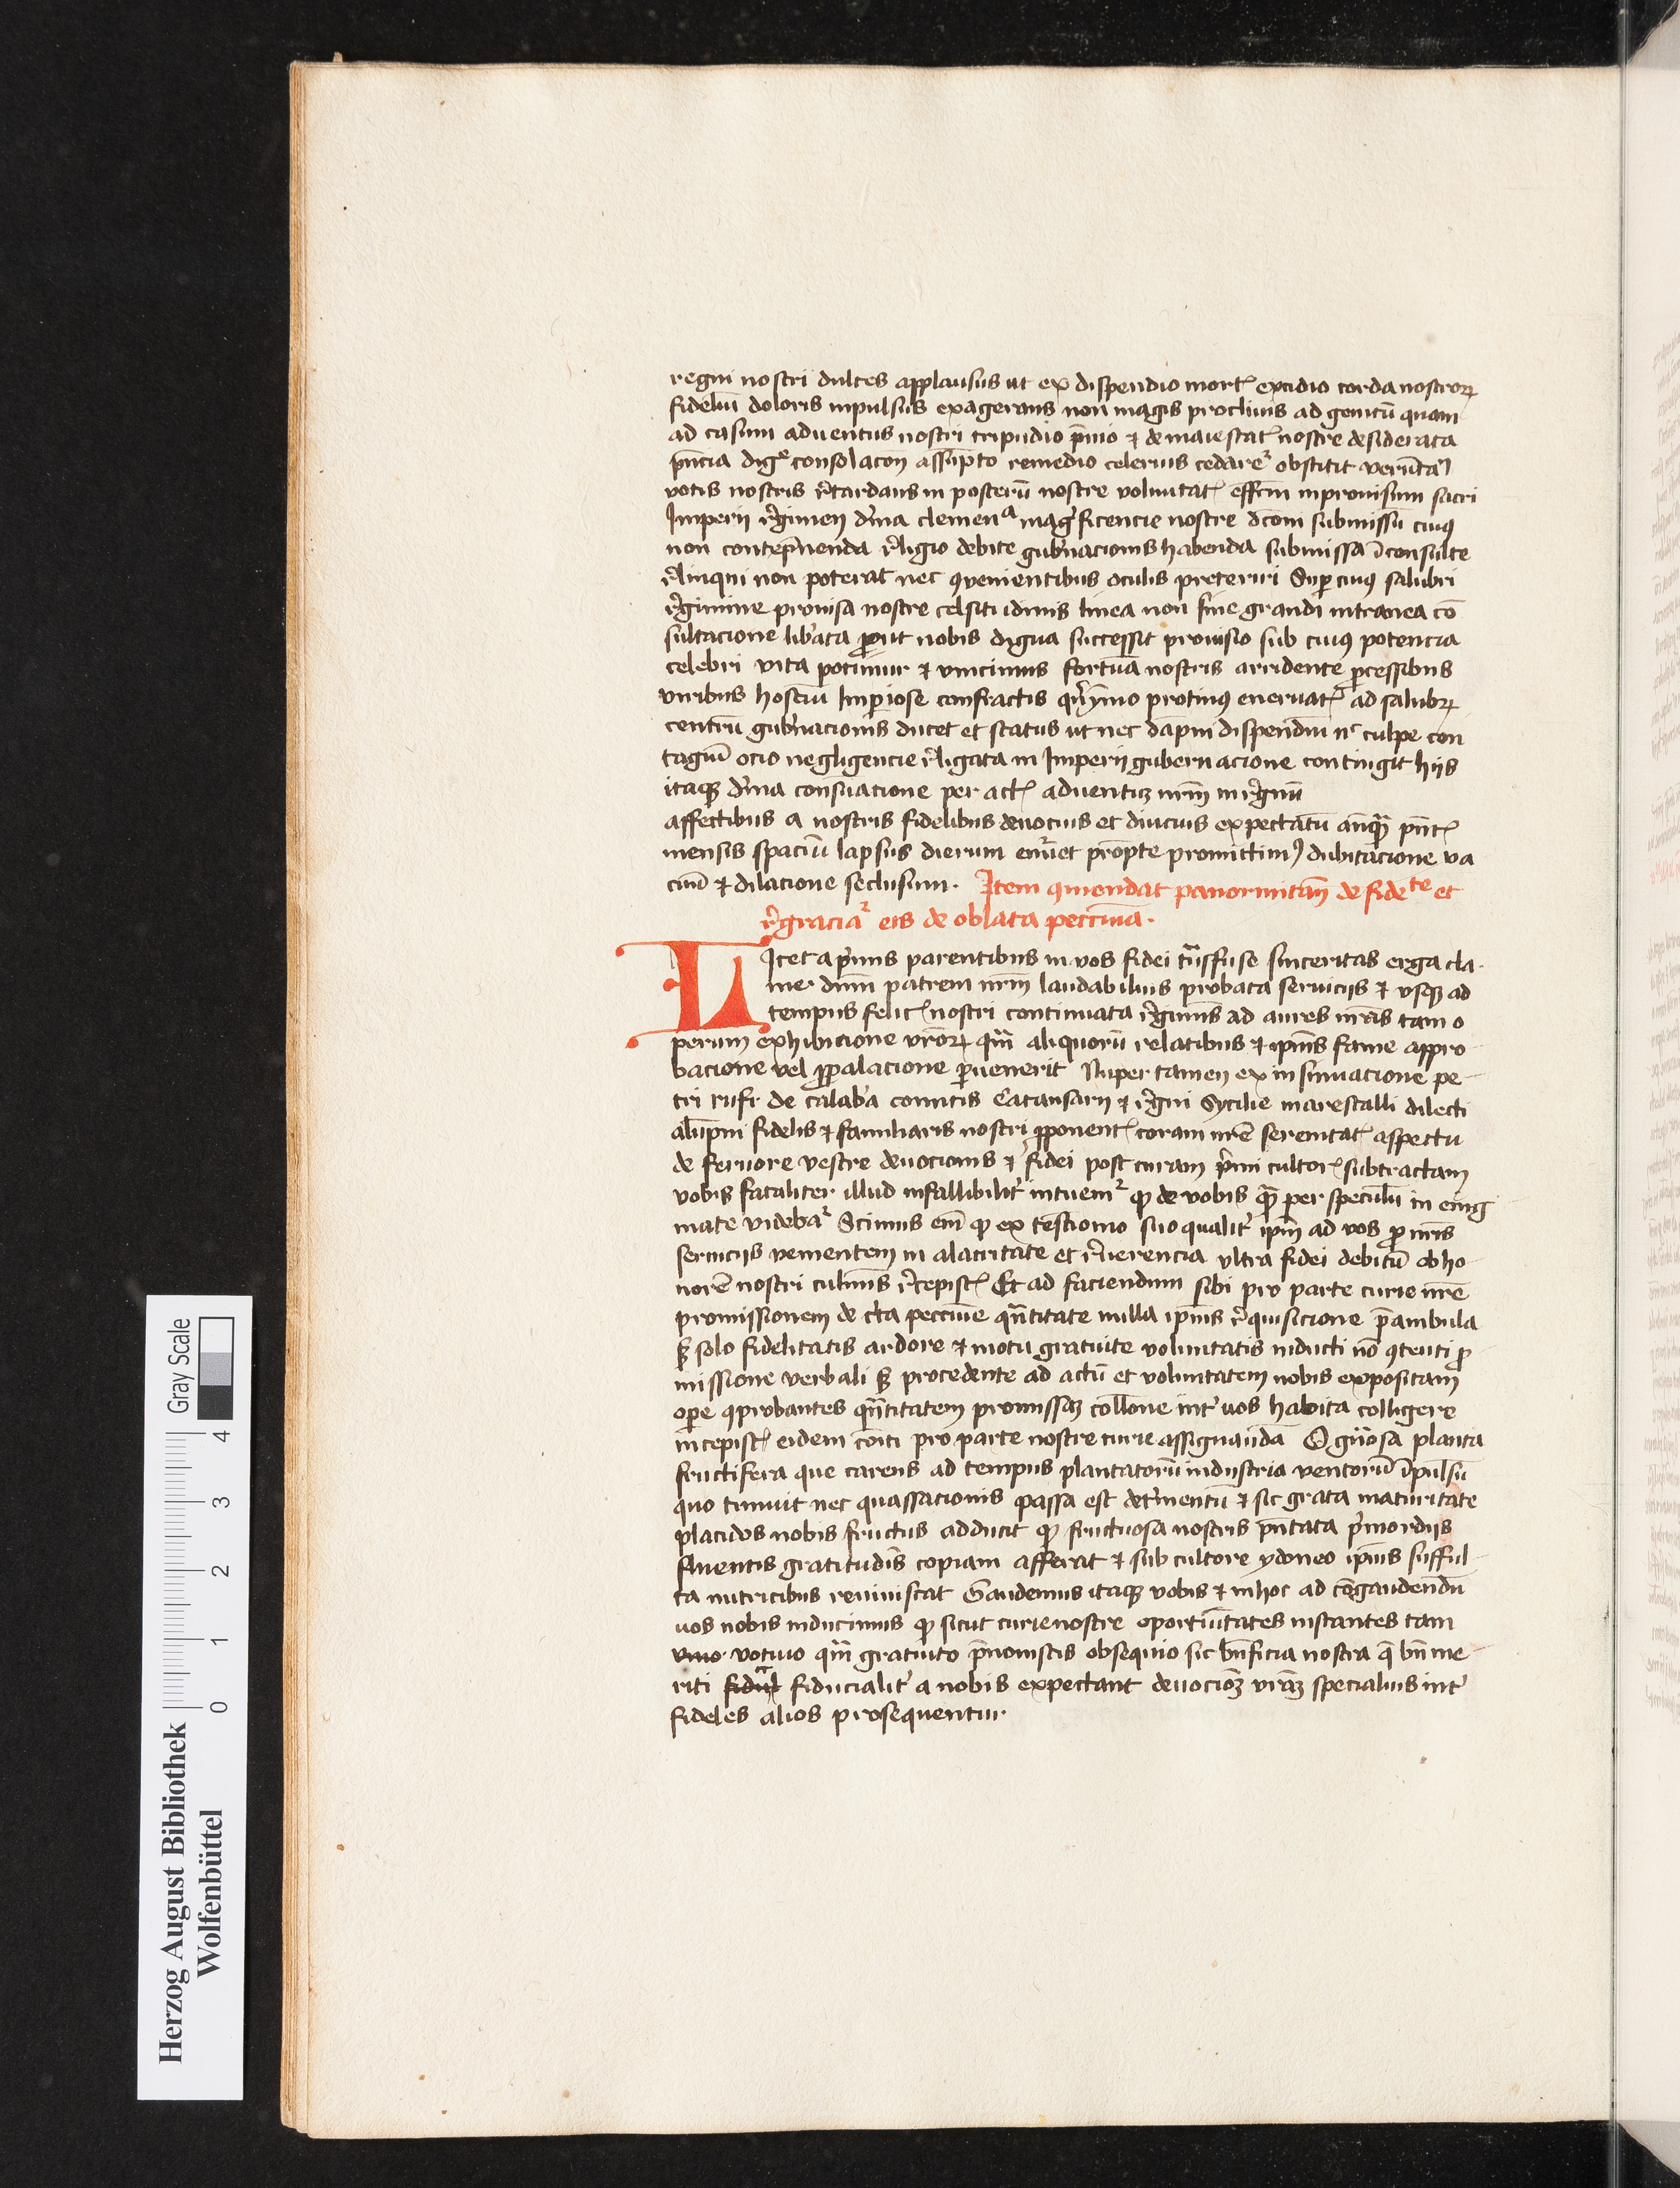 regni nostri dulces applausus ut ex dispendio mortꝭ excidio corda nostroꝝ
fideliū doloris inpulsus exagerans non magis proclivis ad genitū quam
ad casum adventus nostri tripudio p̄vio ⁊ de maiestatꝭ nostre desiderata
pn̄cia dig͛ consolacōn assūpto remedio celerius cedare͛ obstitit verūtn̄
votis nostris r̉tardans in posterū nostre voluntatꝭ effc̄m inprovisum sacri
Imperii r̉gimen d̉ina clemenͣ mag̉ficencie nostre dc̄om submissū cuiꝰ
non contēpnenda r̉ligio debite gub̉nacionis habenda submissa īconsulte
r̉linqui non poterat nec ꝯvenientibus oculis preteriri Suꝑ cuiꝰ salubri
r̉gimine provisa nostre celsitudinis linea non sine grandi intranea cō
sultacione lib̉ata ꝓut nobis digna successit provisio sub cuiꝰ potencia
celebri vita potimur ⁊ vincimus fortūa nostris arridente ꝓcessibus
viribus hostiū Imꝑiose confractis qn̉ymo protinꝰ enervatꝭ ad salubꝝ
centrū gub̉nacionis ducet et status ut nec dāpni dispendiū nᶜ culpe con
tagiū ocio negligencie r̉ligata in Imperij gubernacione contingit hijs
itaqꝫ d̉ina consuacione per actꝭ adventū nr̄m in r̉gnū
affectibus a nostris fidelibus devocius et diucius expectatū anqꝫ pn̄tꝭ
mensis spaciū lapsus dierum em̉et prōpte promittimꝰ dubitacione va
cuū ⁊ dilacione seclusum. Item ꝯmendat panormitan̄ de fideᵗᵉ et
r̉gracia͛ eis de oblata peccunia.
Licet a p̉mis parentibus in vos fidei tn̄sfuse sinceritas erga cla
me. dnm̄ patrem nrm̄ laudabilius probata serviciis ⁊ vsqꝫ ad
tempus felicꝭ nostri continuata r̉giminis ad aures nr̄as tam o
perum exhibicione vr̄oꝝ qm̄ aliquorū relatibus ⁊ ipīus fame appro
bacione vel ꝓpalacione ꝑvenerit Nuper tamen ex insinuacione pe
tri rufi de calab̉a comitis Catansarij ⁊ r̉gni Sycilie marescalli dilecti
alūpni fidelis ⁊ familiaris nostri ꝓponentꝭ coram nr̄e serenitatꝭ aspectu
de fervore vestre devocionis ⁊ fidei post curam p̉mi cultorꝭ subtractam
vobis fataliter illud infallibilit̉ intuem͛ ꝙ de vobis qꝫ per speculū in enig
mate videba͛ Scimus em̄ ꝙ ex testimonio suo qualit̉ ipm̄ ad vos ꝓ nr̄is
serviciis venientem in alacritate et r̉verencia vltra fidei debitū ob ho
norē nostri culmīs r̉cepistꝭ Et ad faciendum sibi pro parte curie nr̄e
promissionem de c̉ta peccunie qn̄titate nulla ipīus r̉quisicione p̄ambula
sꝫ solo fidelitatis ardore ⁊ motu gratuite voluntatis inducti nō ꝯtenti ꝓ
missione verbali sꝫ procedente ad actū et voluntatem nobis expositam
oꝑe ꝯprobantes qn̄titatem promissaꝫ coll̄one int̉ vos habita colligere
incepistꝭ eidem cōiti pro parte nostre curie assignanda O gn̄osa planta
fructifera que carens ad tempus plantatorū industria ventorū īpulsū
quo timuit nec quassacionis passa est det̉mentū ⁊ sic grata maturitate
placidos nobis fructus adducit ꝙ fructuosa nostris pn̄tata p̉mordijs
fluentis gratitudīs copiam afferat ⁊ sub cultore ydoneo ipīus suffu
lta nutricibus reviviscat Gaudemus itaqꝫ vobis ⁊ in hoc ad cōgaudendū
vos nobis inducimus ꝙ sicut curie nostre oportūitates instantes tam
vmo votivo qm̄ gratuito p̄novistis obsequio sic bn̄ficia nostra q̄ bn̄ me
riti fiducialit̉ a nobis expectant devocioꝫ vr̄aꝫ specialius int̉
fideles alios prosequentur
Herzog August Bibliothek
Wolfenbüttel
Gray Scale
0 1 2 3 4